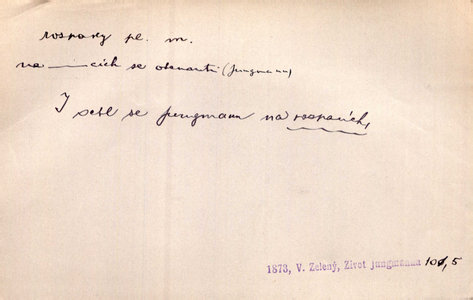 rozpaky pl. m.
na ——cích se octnouti (Jungmann)
I octl se Jungmann na rozpacích,
1873, V. Zelený, Život Jungmanna 101,5